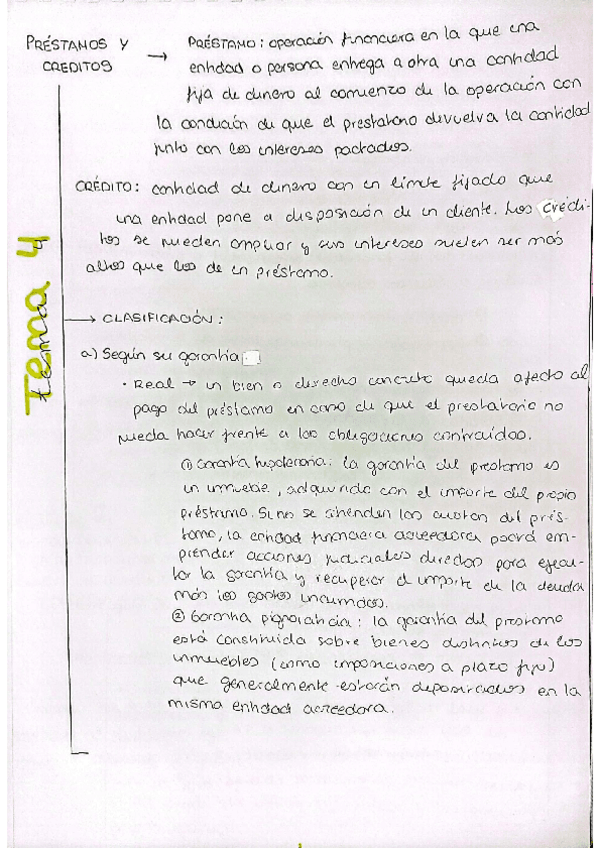 PRÉSTAMOS Y
CREDITOS
→ PRÉSTAMO: operación financiera en la que una
entidad o persona entrega a otra una cantidad
fija de dinero al comienzo de la operación con
la condición de que el prestatario devuelva la cantidad
junto con los intereses pactados.
CRÉDITO: cantidad de dinero con un límite fijado que
una entidad pone a disposición de un cliente. Los crédi-
tos se pueden ampliar y sus intereses suelen ser más
altos que los de un préstamo.
Tema 4
→ CLASIFICACIÓN:
a) Según su garantía:
• Real → un bien o derecho concreto queda afecto al
pago del préstamo en caso de que el prestatario no
pueda hacer frente a las obligaciones contraídas.
① Garantía hipotecaria: la garantía del prestamo es
un inmueble, adquirido con el importe del propio
préstamo. Si no se atienden las cuotas del prés-
tamo, la entidad financiera acreedora podrá em-
prender acciones judiciales directas para ejecu-
tar la garantía y recuperar el importe de la deuda
más los gastos incurridos.
② Garantía pignoraticia: la garantía del prestamo
está constituida sobre bienes distintos de los
inmuebles (como imposiciones a plazo fijo)
que generalmente estarán depositados en la
misma entidad acreedora.